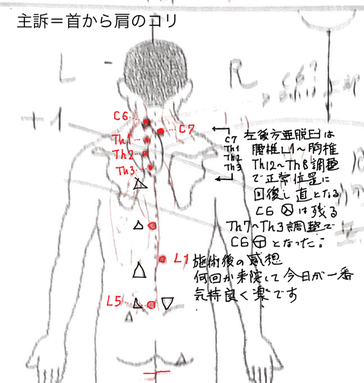 主訴=首から肩のコリ
L
R
+1
C6
C7
Th1
Th2
Th3
L1
L5
C7
Th1
Th2
Th3
左後方亜脱臼は
腰椎L1〜胸椎
Th12〜Th8調整
で正常位置に
回復し直となる
C6 は残る
Th7〜Th3調整で
C6 となった。
施術後の感想
何回か来院して今日が一番
気持良く楽です